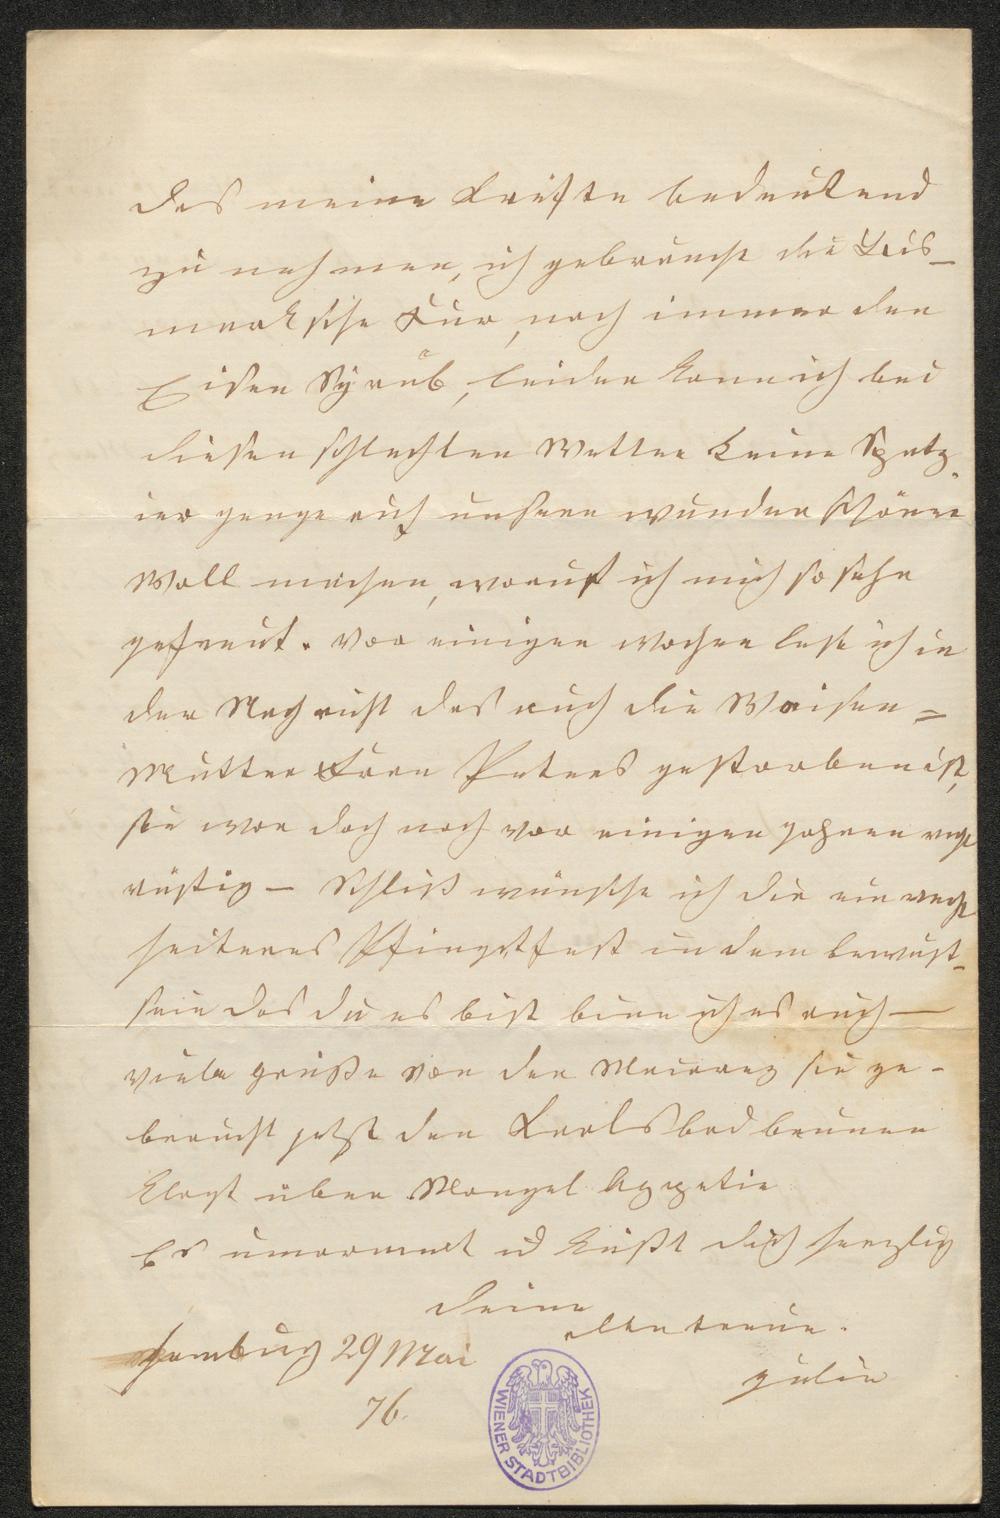 das meine Kräfte bedeutend
zu nehmen, ich gebrauche die Bis-
marksche Kur, noch immer den
Eisen Syrub, leider kann ich bei
diesen schlechten Wetter keine Spatz-
ier genge auf unsern wunder schönen
Wall machen, worauf ich mich so sehr
gefreut. Vor einigen Wochen lese ich in
der Nachricht das auch die Waisen=
Mutter Frau Peters gestorben ist,
sie war doch noch vor einigen Jahren recht
rüstig — Schließ wünsche ich dir ein recht
heiteres Pfingstfest in dem bewust-
sein das du es bist bin ich es auch —
viele grüße von der sie ge-
braucht jetzt den Karlsbad brunnen
klagt über Mangel Appetie
Es umarmt und küßt dich herzlig
deine
alte treue.
Julie
Hamburg 29 Mai
76.
WIENER STADTBIBLIOTHEK